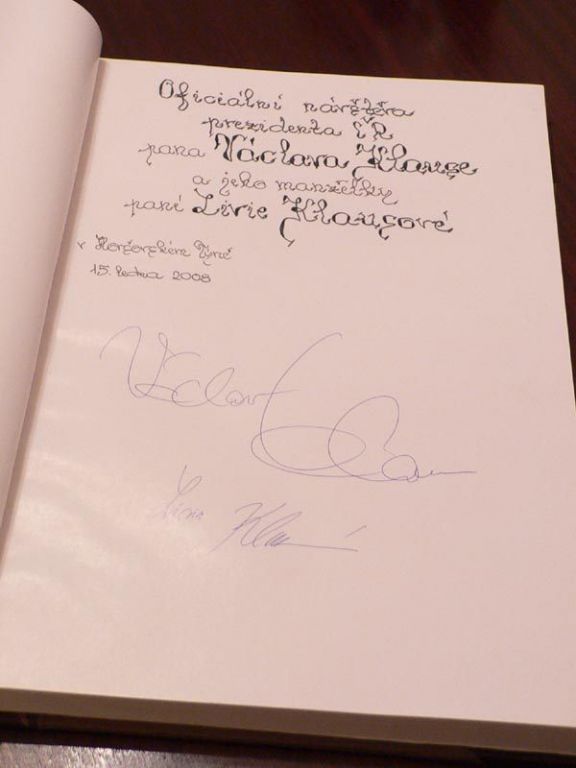 Oficiální návštěva
prezidenta ČR
pana Václava Klause
a jeho manželky
paní Livie Klausové
v Horšovském Týně
15. ledna 2008
Václav Klaus
Livia Klausová